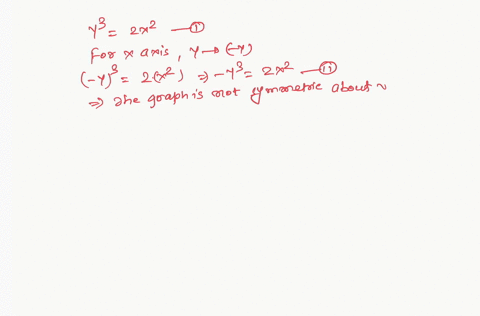 y³ = 2x² —①
For x axis, y → (-y)
(-y)³ = 2(x²) ⇒ -y³ = 2x² —②
⇒ The graph is not symmetric about